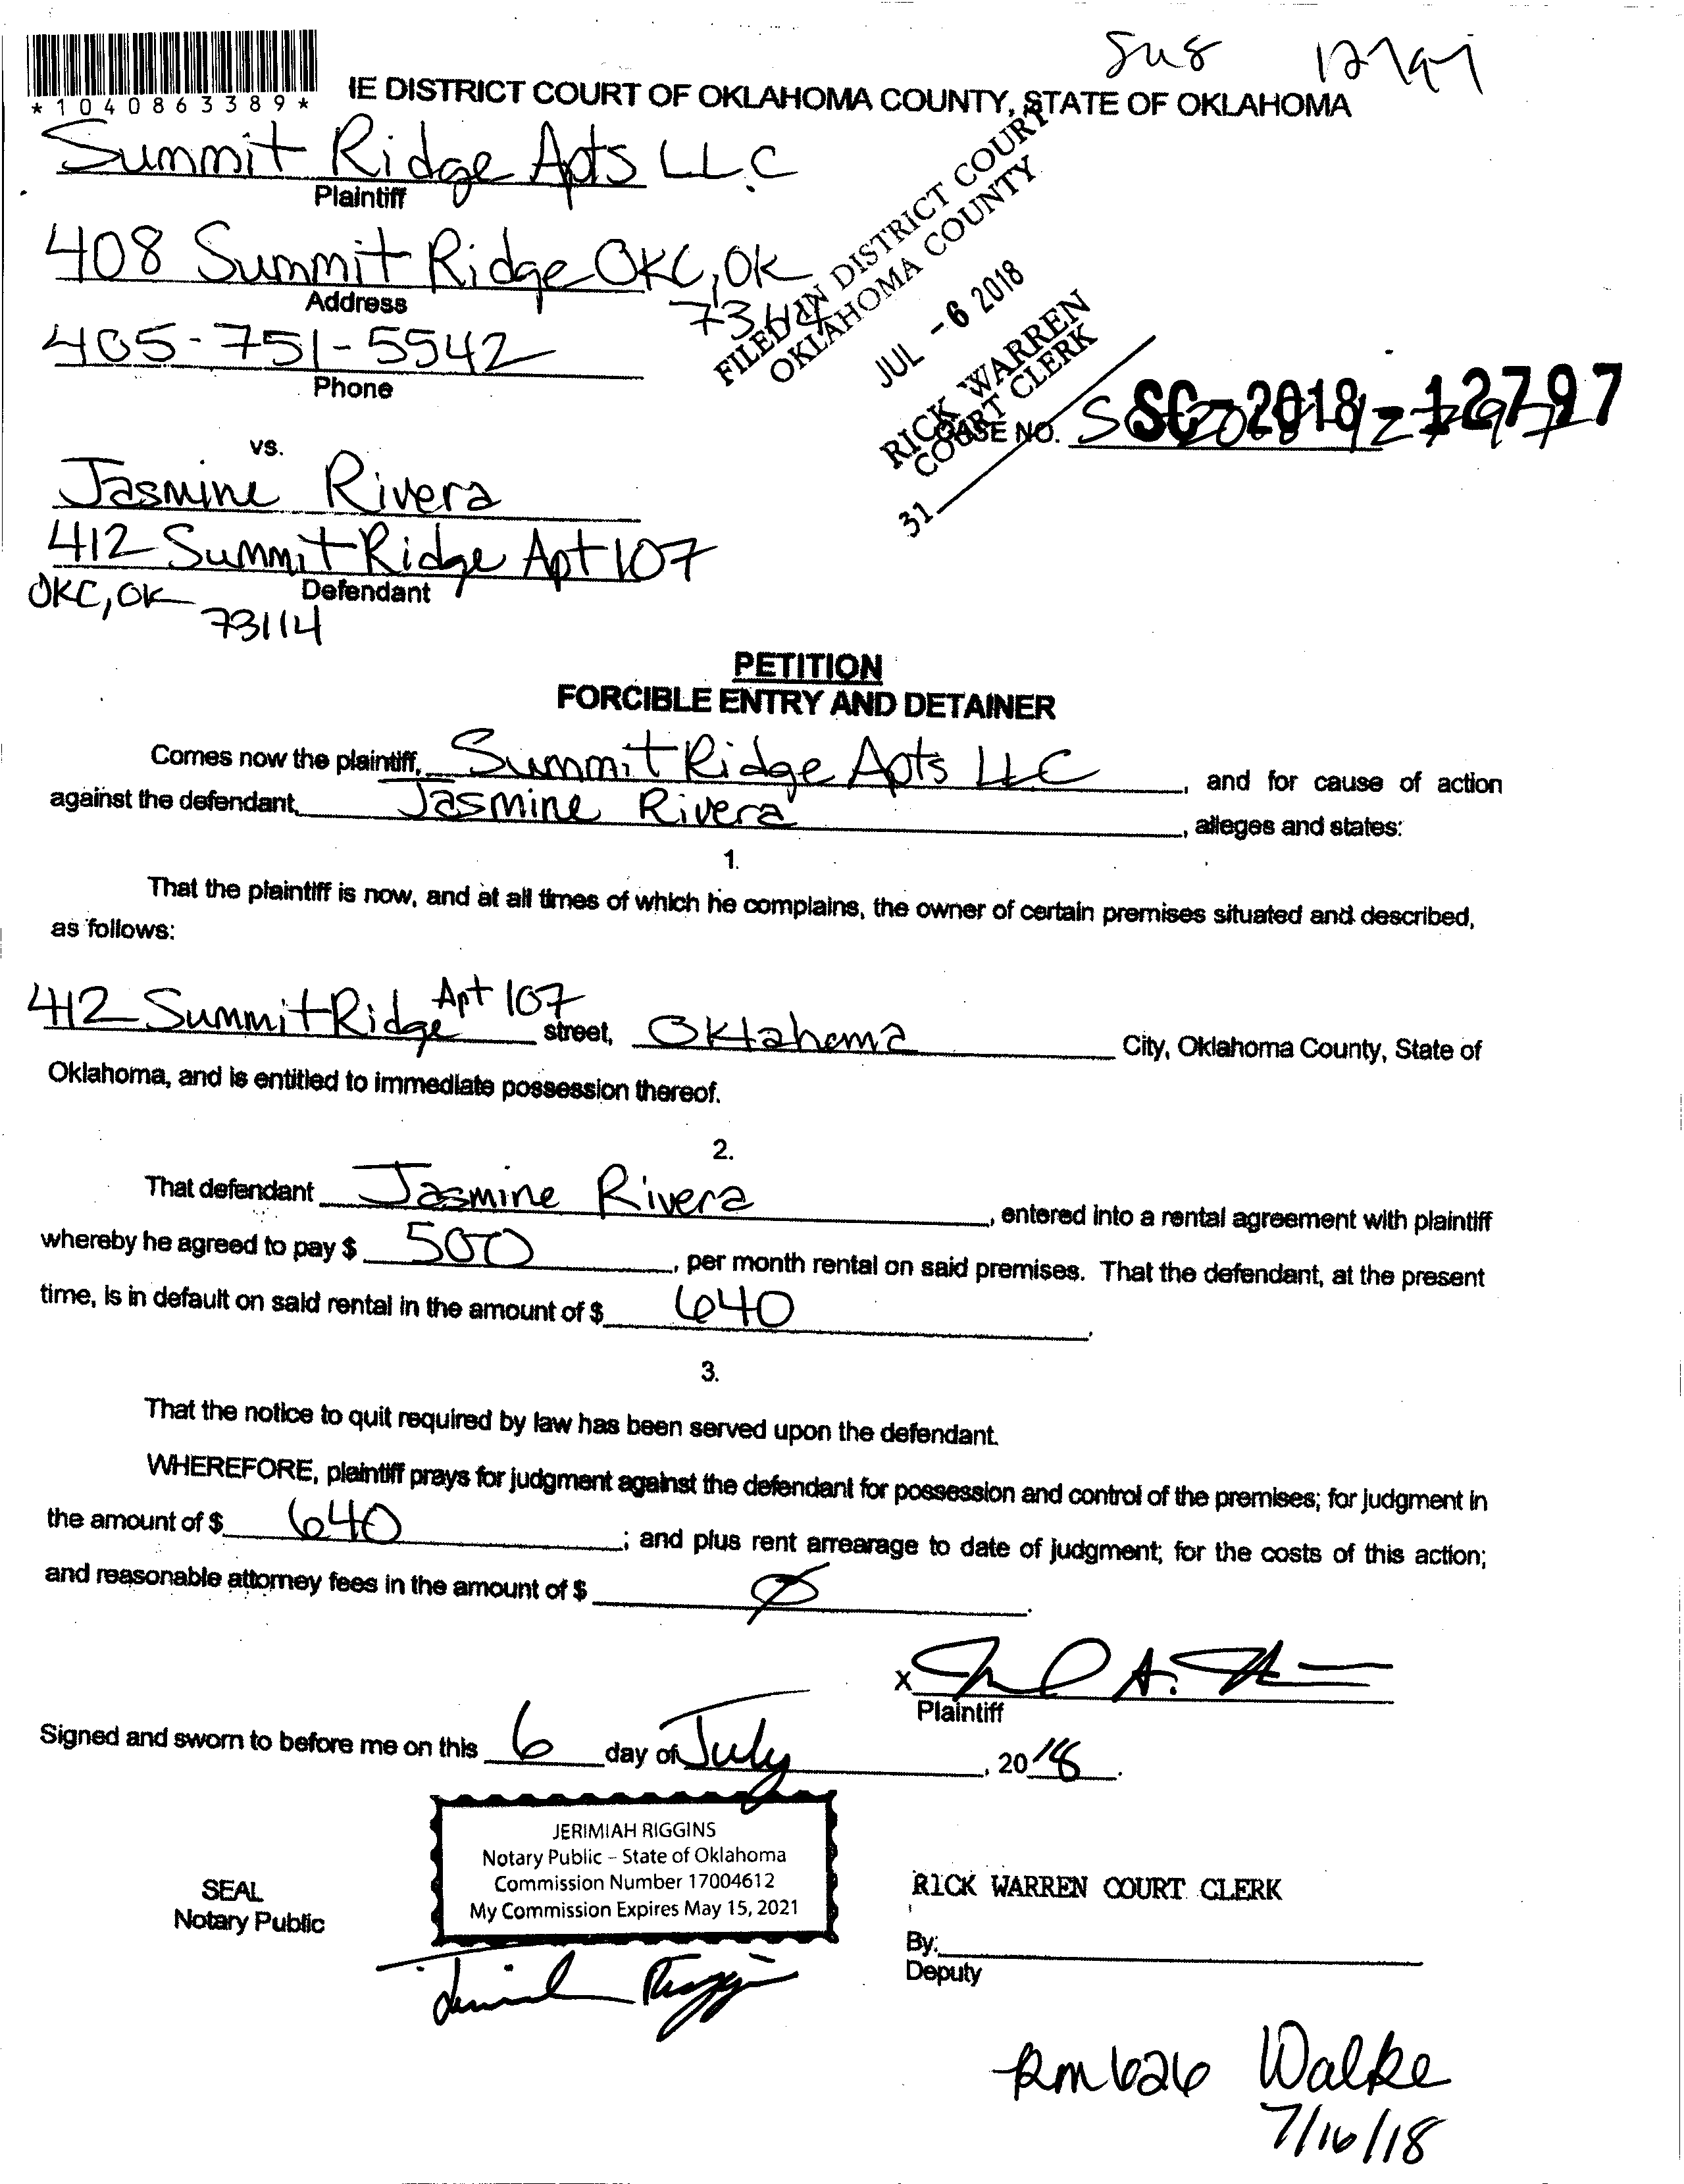 *1040863389*
IE DISTRICT COURT OF OKLAHOMA COUNTY, STATE OF OKLAHOMA
Summit Ridge Apts LLC
Plaintiff
408 Summit Ridge OKC, OK
Address
405-751-5542
Phone
FILED IN DISTRICT COURT
OKLAHOMA COUNTY
JUL -6 2018
RICK WARREN
COURT CLERK
31
CASE NO. SC-2018-12797
vs.
Jasmine Rivera
412 Summit Ridge Apt 107
Defendant
OKC, OK
73114
PETITION
FORCIBLE ENTRY AND DETAINER
Comes now the plaintiff, Summit Ridge Apts LLC, and for cause of action
against the defendant, Jasmine Rivera, alleges and states:
1.
That the plaintiff is now, and at all times of which he complains, the owner of certain premises situated and described,
as follows:
412 Summit Ridge Apt 107 street, Oklahoma City, Oklahoma County, State of
Oklahoma, and is entitled to immediate possession thereof.
2.
That defendant Jasmine Rivera, entered into a rental agreement with plaintiff
whereby he agreed to pay $ 500, per month rental on said premises. That the defendant, at the present
time, is in default on said rental in the amount of $ 640.
3.
That the notice to quit required by law has been served upon the defendant.
WHEREFORE, plaintiff prays for judgment against the defendant for possession and control of the premises; for judgment in
the amount of $ 640; and plus rent arrearage to date of judgment; for the costs of this action;
and reasonable attorney fees in the amount of $ Ø.
X
Plaintiff
Signed and sworn to before me on this 6 day of July, 2018.
JERIMIAH RIGGINS
Notary Public – State of Oklahoma
Commission Number 17004612
My Commission Expires May 15, 2021
SEAL
Notary Public
RICK WARREN COURT CLERK
By:
Deputy
Rm 626 Walke
7/16/18